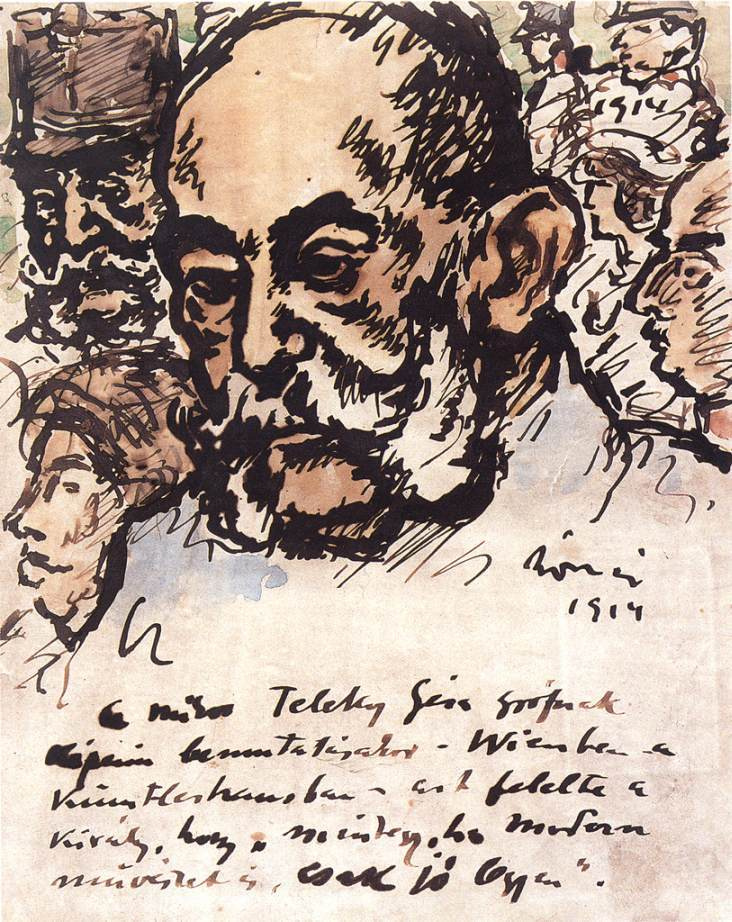 1914
1914
a mikor Teleky Géza grófnak
képeim bemutatásakor – Wienben a
Künstlerhausban – azt felelte a
Király, hogy „mindegy, ha modern
művészet is, csak jó legyen”.